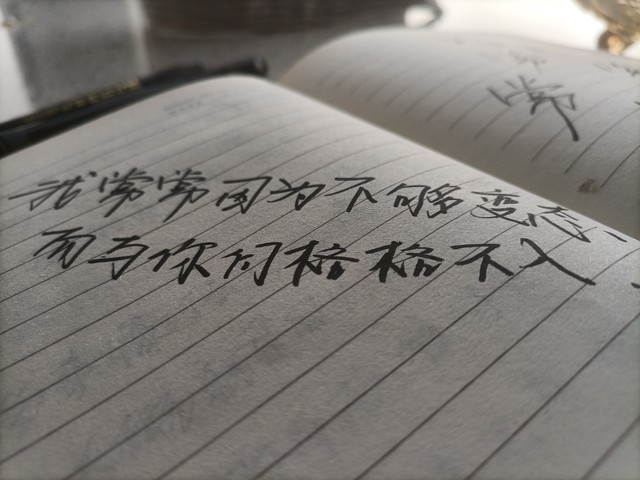 我常常因为不够变态
而与你们格格不入
常